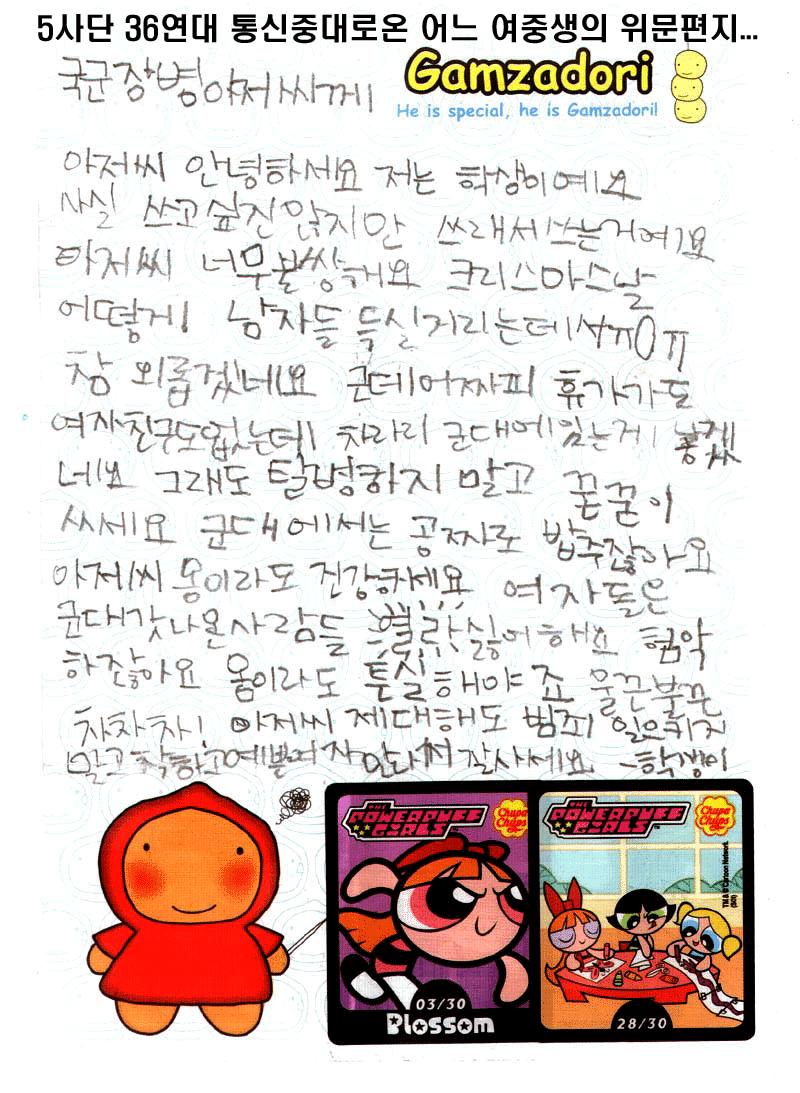 5사단 36연대 통신중대로온 어느 여중생의 위문편지...
국군장병아저씨께
Gamzadori
He is special, he is Gamzadori!
아저씨 안녕하세요 저는 학생이예요
사실 쓰고싶진않지만 쓰래서쓰는거에요
아저씨 너무불쌍해요 크리스마스날
어떻게 남자들 득실거리는데서ㅠ0ㅠ
참 외롭겠네요 군데어짜피 휴가가도
여자친구도없는데 차라리 군대에있는게 좋겠
네요 그래도 탈병하지 말고 꾿꾿이
사세요 군대에서는 공짜로 밥주잖아요
아저씨 몸이라도 건강하세요 여자들은
군대갓나온사람들 열라싫어해요 험악
하잖아요 몸이라도 튼실해야죠 울끈불끈
차차차! 아저씨 제대해도 범죄 일으키지
말고 착하고예쁜여자만나서 잘사세요 -학생이
THE POWERPUFF GIRLS™
Chupa Chups
03/30
Blossom
THE POWERPUFF GIRLS™
Chupa Chups
TM & © Cartoon Network
28/30